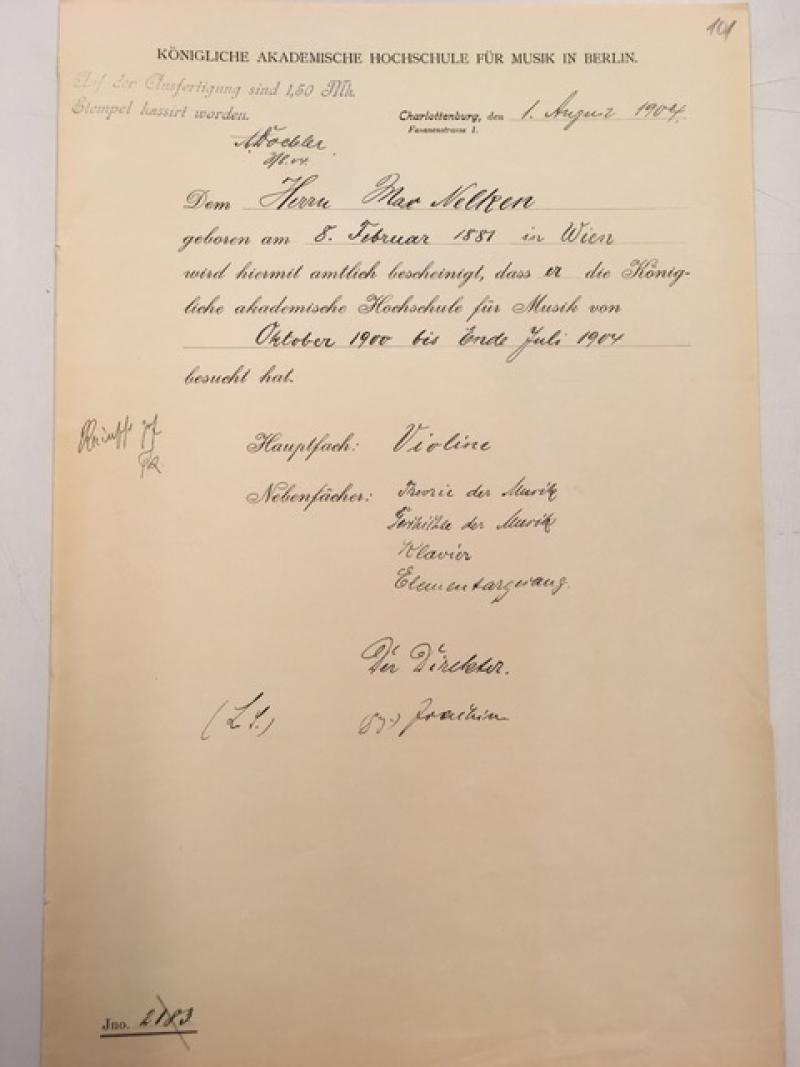 101
KÖNIGLICHE AKADEMISCHE HOCHSCHULE FÜR MUSIK IN BERLIN.
Auf der Ausfertigung sind 1,50 Mk.
Stempel kassirt worden.
Charlottenburg, den 1. August 1904.
Fasanenstrasse 1.
Dem Herrn Max Nelken
geboren am 8. Februar 1881 in Wien
wird hiermit amtlich bescheinigt, dass er die König-
liche akademische Hochschule für Musik von
Oktober 1900 bis Ende Juli 1904
besucht hat.
Hauptfach: Violine
Nebenfächer: Theorie der Musik
Geschichte der Musik
Klavier
Elementargesang.
Der Direktor.
(L.S.) (gz.) Joachim
Jno. 2183